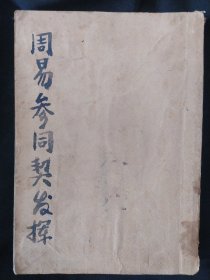 周易参同契发挥